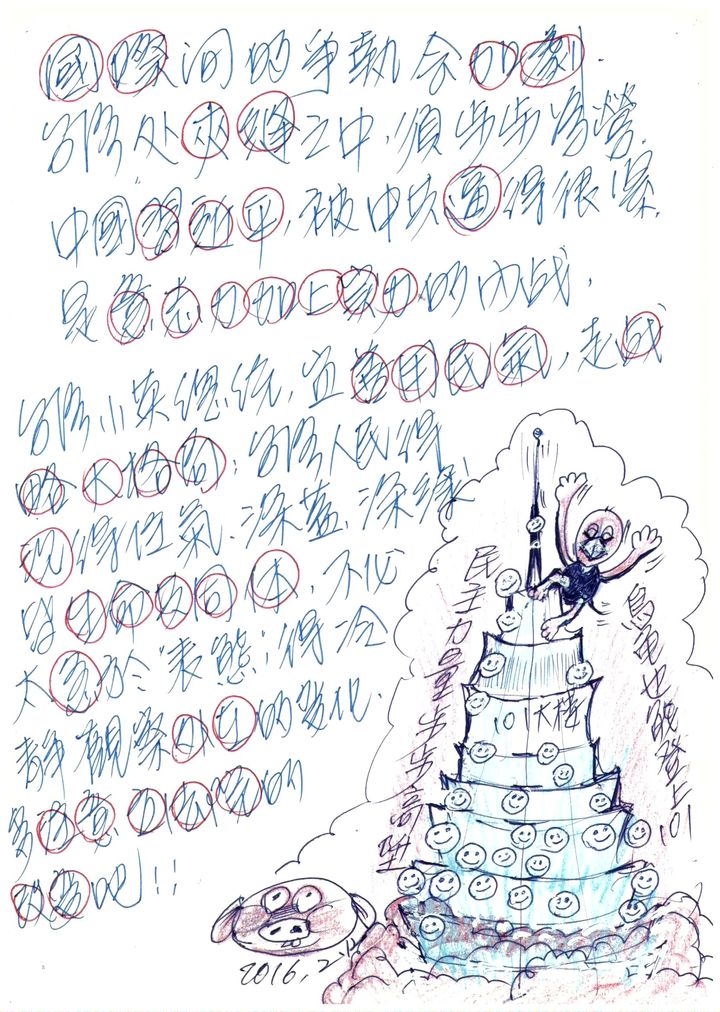 國際间的爭執会加劇.
台湾处夾縫之中,須步步為營.
中國習近平,被中共逼得很深.
是意志力加上实力的內战,
台湾小英總统,宜善用民氣,走战
略大格局;台湾人民得
沉得住氣.深藍、深綠
皆生命共同体,不必
太急於"表態;得冷
靜觀察外在的变化.
多注意的
改善吧!!
民主力量步步高昇
101大樓
烏龜也能登上101
2016.2